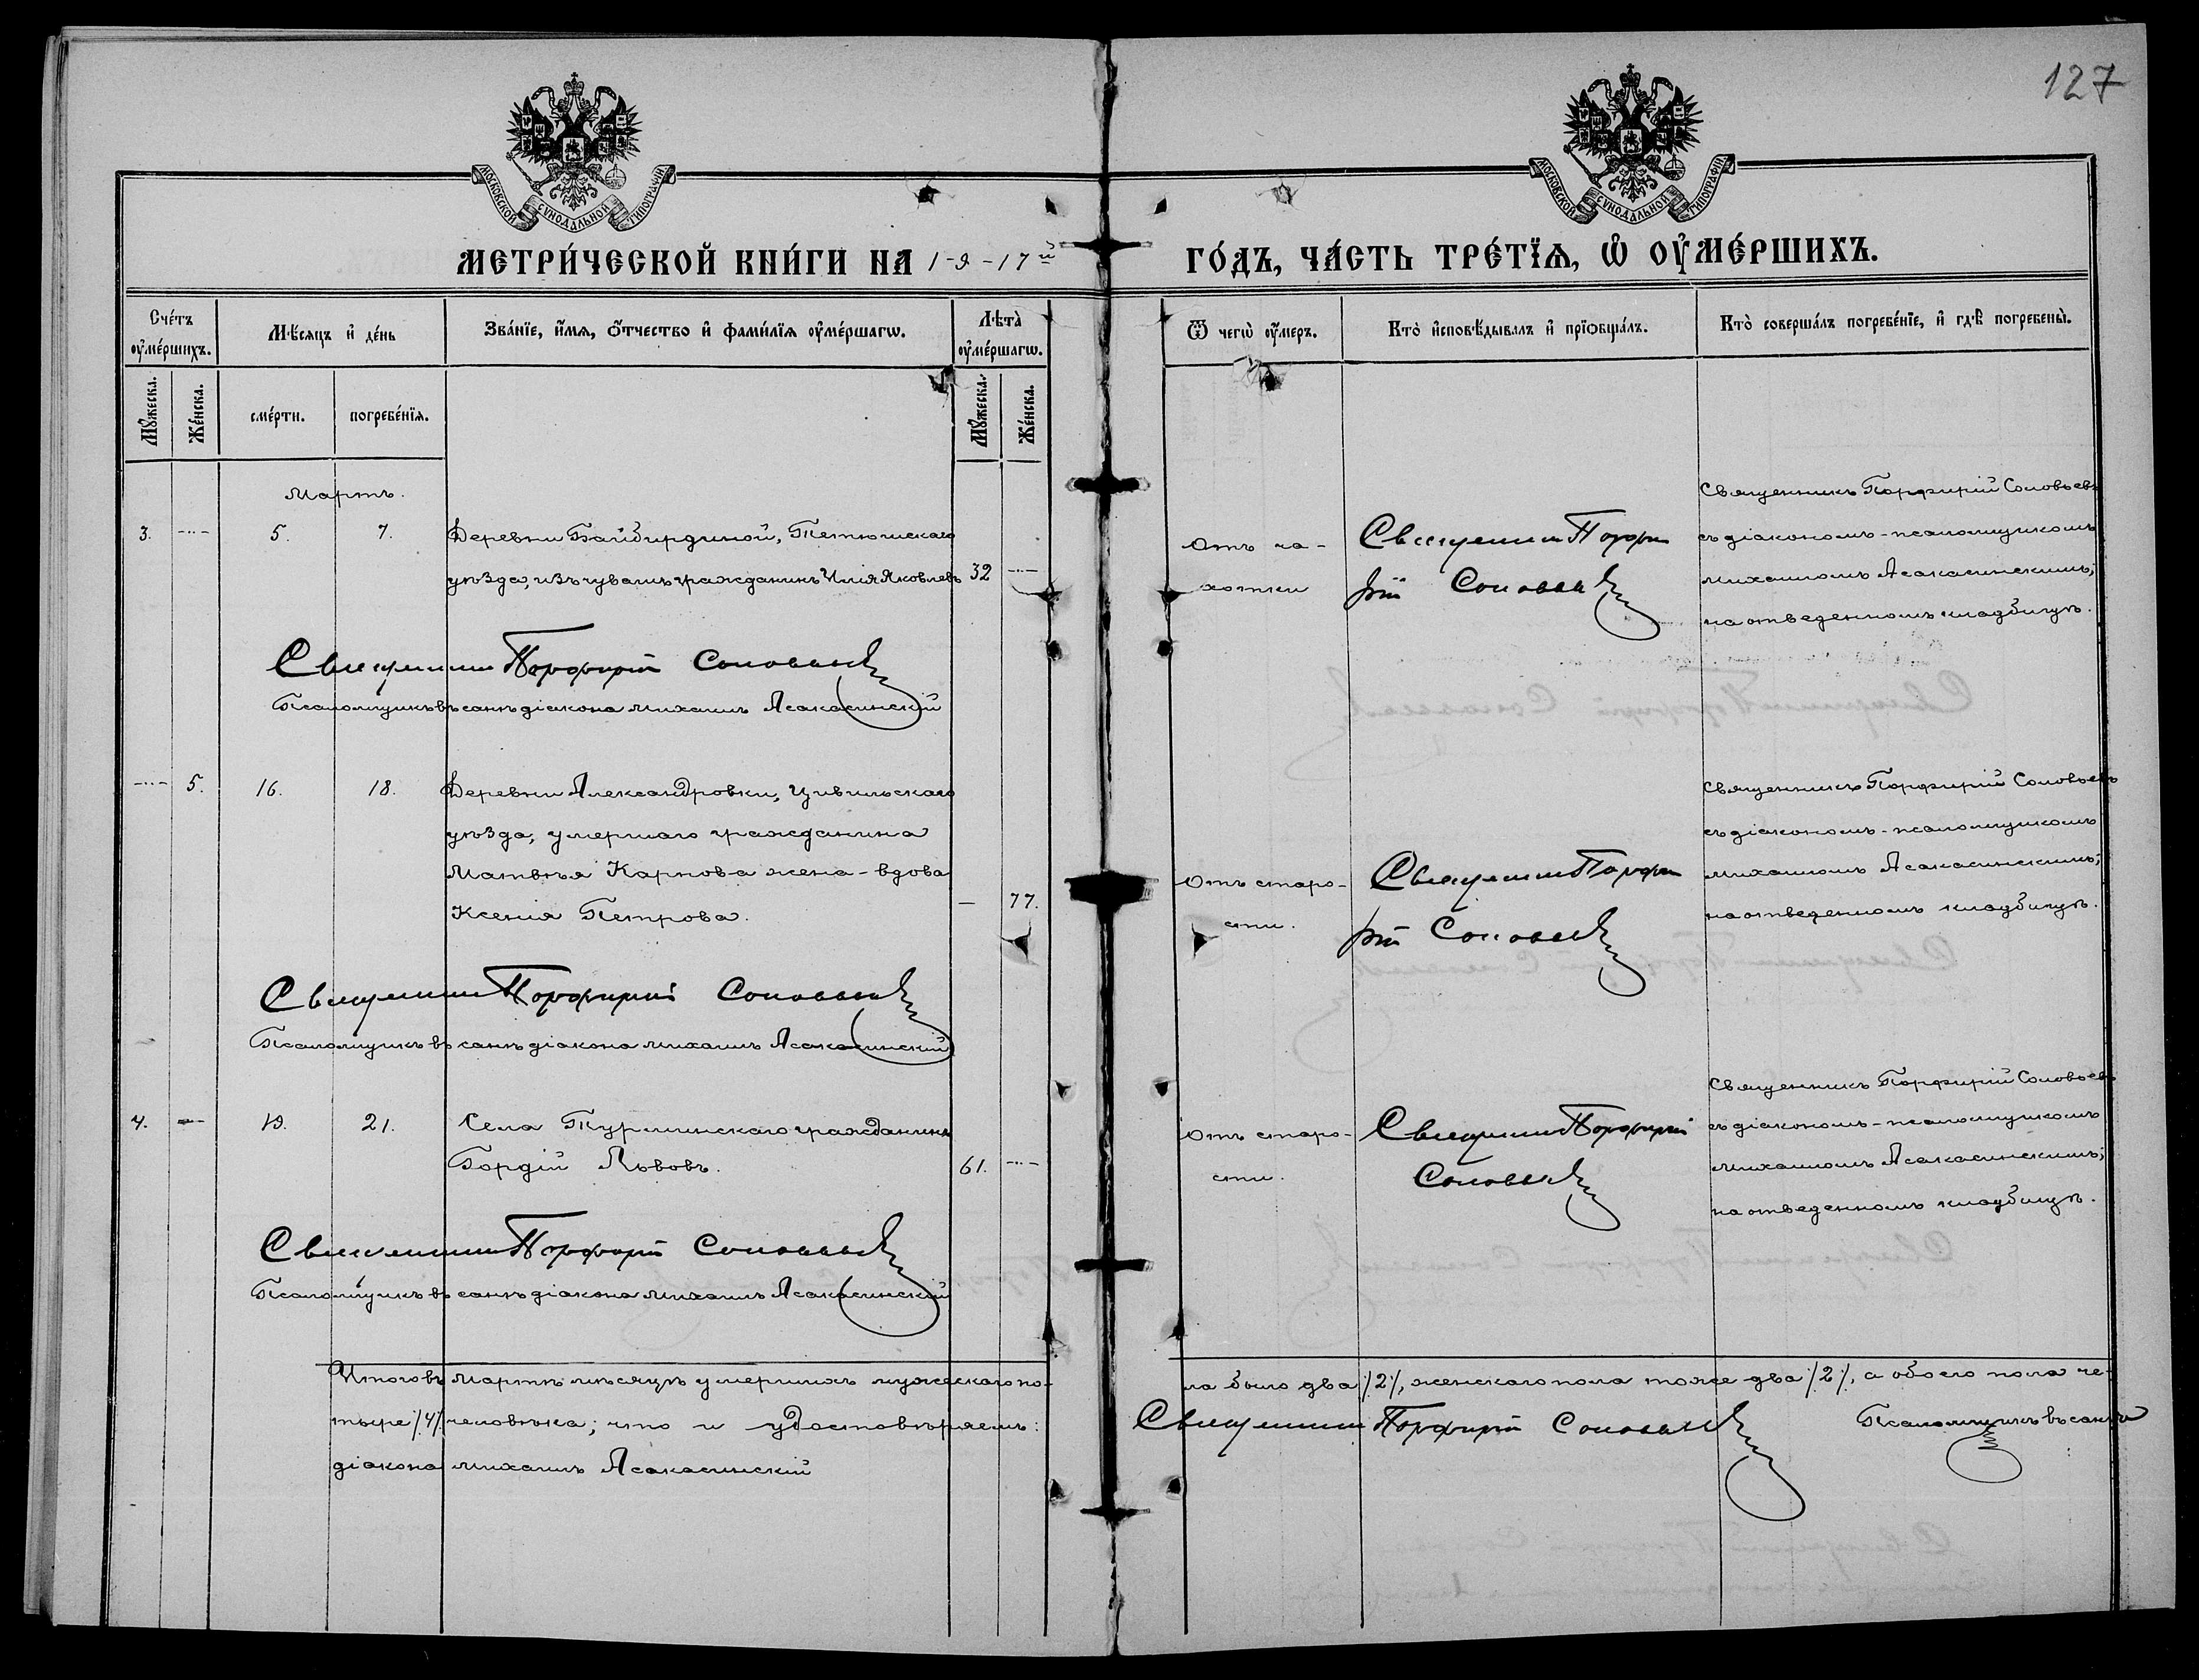 127
МОСКОВСКОЙ СУНОДАЛЬНОЙ ТИПОГРАФІИ
МОСКОВСКОЙ СУНОДАЛЬНОЙ ТИПОГРАФІИ
МЕТРИ́ЧЕСКОЙ КНИ́ГИ НА 1-9-17й ГО́ДЪ, ЧА́СТЬ ТРЕ́ТЇѦ, Ѡ ОУ҆МЕ́РШИХЪ.
Сче́тъ оу҆ме́ршихъ.
Мꙋ́жеска.
Же́нска.
Мѣ́сяцъ и҆ де́нь
сме́рти.
погребе́нїѧ.
Зва́нїе, и҆́мѧ, ѻ҆́тчество и҆ фами́лїѧ оу҆ме́ршагѡ.
Лѣ́та оу҆ме́ршагѡ.
Мꙋ́жеска.
Же́нска.
Ѿ чегѡ̀ оу҆́меръ.
Кто̀ и҆сповѣ́дывалъ и҆ прїѡбща́лъ.
Кто̀ соверша́лъ погребе́нїе, и҆ гдѣ̀ погребены̀.
Мартъ.
3. -··- 5. 7. Деревни Байбирдиной, Тетюшскаго
уѣзда, изъ чувашъ гражданинъ Илія Яковлевъ 32 -··-
Отъ ча-
хотки
Священникъ Порфи
рій Соловьевъ
Священникъ Порфирій Соловьевъ
съ діакономъ-псаломщикомъ
Михаиломъ Асакасинскимъ;
на отведенномъ кладбищѣ.
Священникъ Порфирій Соловьевъ
Псаломщикъ въ санѣ діакона Михаилъ Асакасинскій
-··- 5. 16. 18. Деревни Александровки, Цивильскаго
уѣзда, умершаго гражданина
Матвѣя Карпова жена-вдова
Ксенія Петрова. - 77.
Отъ старо-
сти.
Священникъ Порфи
рій Соловьевъ
Священникъ Порфирій Соловьевъ
съ діакономъ-псаломщикомъ
Михаиломъ Асакасинскимъ;
на отведенномъ кладбищѣ.
Священникъ Порфирій Соловьевъ
Псаломщикъ въ санѣ діакона Михаилъ Асакасинскій
4. -··- 19. 21. Села Турминскаго гражданинъ
Гордій Львовъ. 61. -··-
Отъ старо-
сти.
Священникъ Порфирій
Соловьевъ
Священникъ Порфирій Соловьевъ
съ діакономъ-псаломщикомъ
Михаиломъ Асакасинскимъ;
на отведенномъ кладбищѣ.
Священникъ Порфирій Соловьевъ
Псаломщикъ въ санѣ діакона Михаилъ Асакасинскій
Итого въ Мартѣ мѣсяцѣ умершихъ мужескаго по-
ла было два /2/, женскаго пола тоже два /2/, а обоего пола че-
тыре /4/ человѣка; что и удостовѣряемъ:
Священникъ Порфирій Соловьевъ Псаломщикъ въ санѣ
діакона Михаилъ Асакасинскій